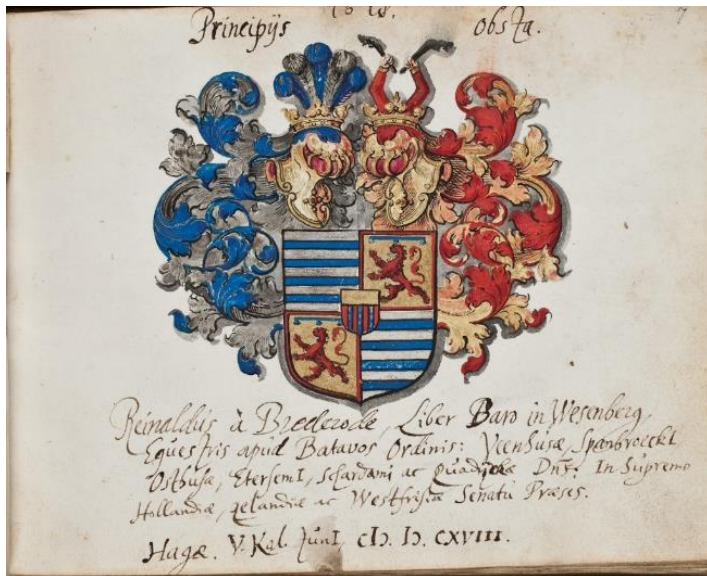 1618.
7
Principijs obsta.
Reinaldus à Brederode, Liber Baro in Wesenberg,
Equestris apud Batavos Ordinis: Veenhusæ, Spanbroeckt
Osthusæ, EtersemI, Schardami ac Quadijckæ Dns: In Supremo
Hollandiæ, Zelandiæ ac Westfrisiæ Senatu Præses.
Hagæ. V. Kal. JunI, cIↃ. IↃ. CXVIII.